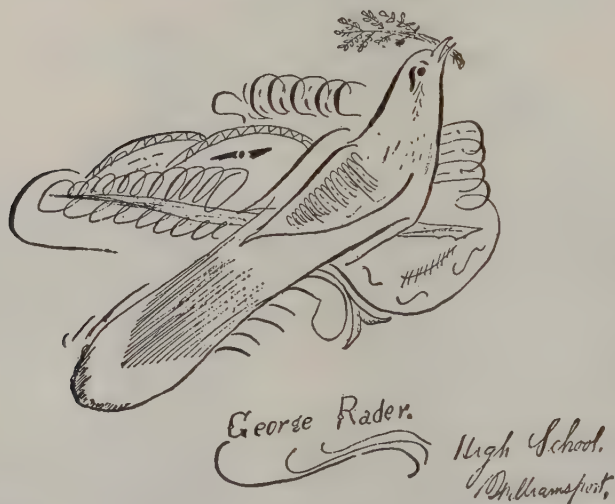 George Rader.
High School.
Williamsport,